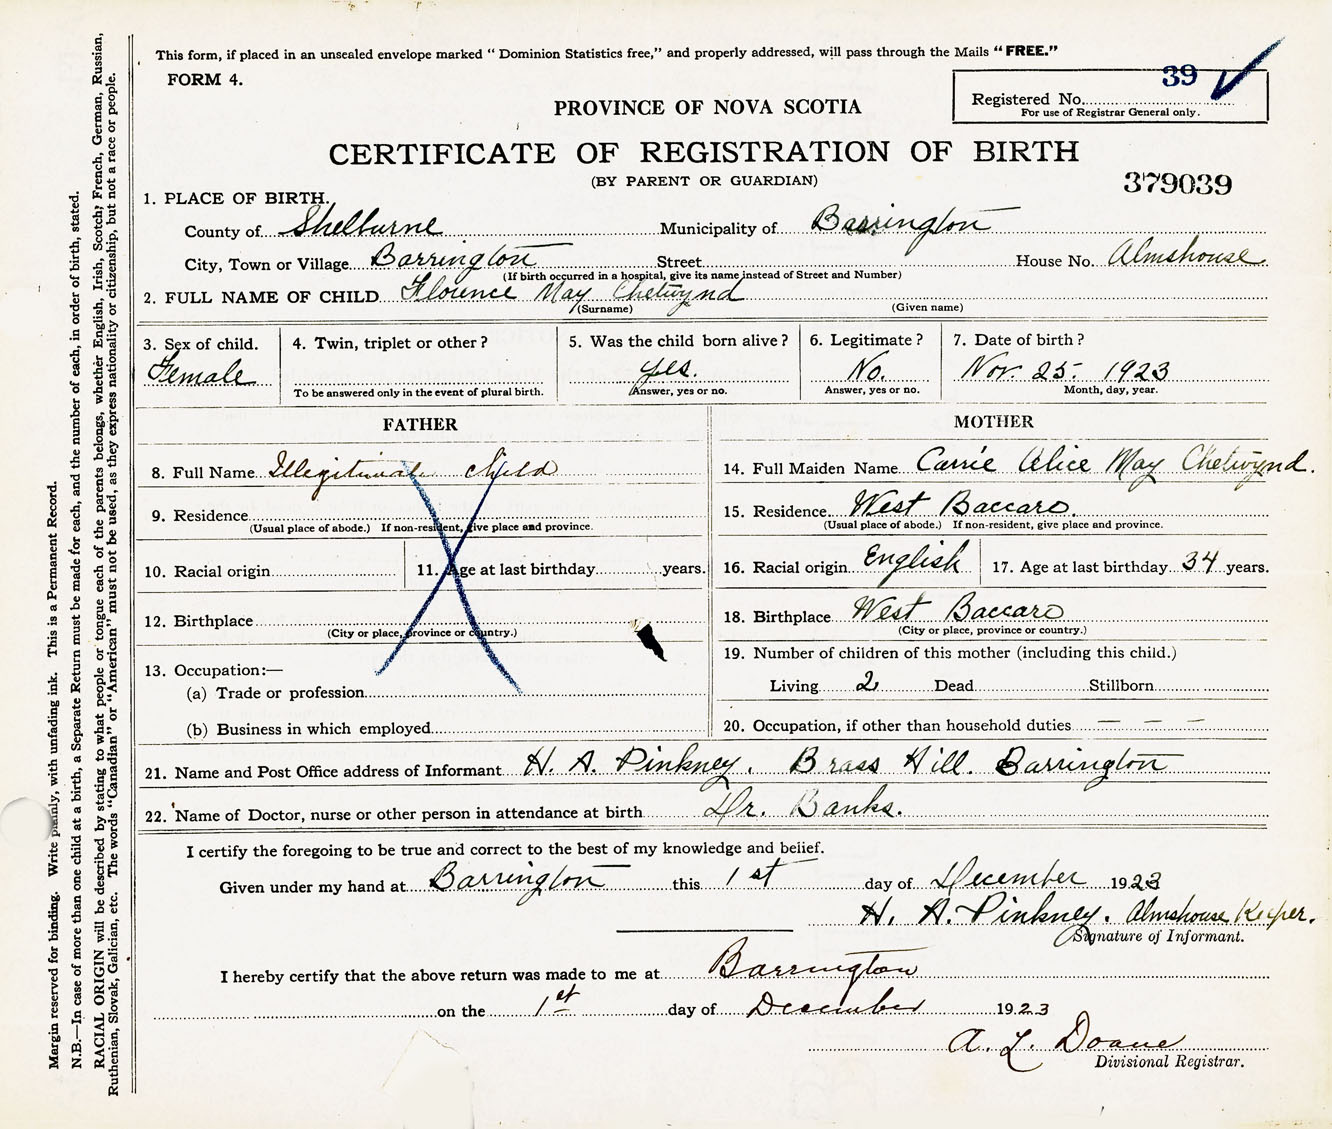 This form, if placed in an unsealed envelope marked "Dominion Statistics free," and properly addressed, will pass through the Mails "FREE."
FORM 4.
39
Registered No.
For use of Registrar General only.
PROVINCE OF NOVA SCOTIA
CERTIFICATE OF REGISTRATION OF BIRTH
(BY PARENT OR GUARDIAN)
379039
1. PLACE OF BIRTH.
County of Shelburne Municipality of Barrington
City, Town or Village Barrington Street House No. Almshouse
(If birth occurred in a hospital, give its name instead of Street and Number)
2. FULL NAME OF CHILD Florence May Chetwynd
(Surname) (Given name)
3. Sex of child. 4. Twin, triplet or other? 5. Was the child born alive? 6. Legitimate? 7. Date of birth?
Female yes. No. Nov. 25- 1923
To be answered only in the event of plural birth. Answer, yes or no. Answer, yes or no. Month, day, year.
FATHER
8. Full Name Illegitimate Child
9. Residence
(Usual place of abode.) If non-resident, give place and province.
10. Racial origin 11. Age at last birthday years.
12. Birthplace
(City or place, province or country.)
13. Occupation:—
(a) Trade or profession
(b) Business in which employed
MOTHER
14. Full Maiden Name Carrie Alice May Chetwynd.
15. Residence West Baccaro.
(Usual place of abode.) If non-resident, give place and province.
16. Racial origin English 17. Age at last birthday 34 years.
18. Birthplace West Baccaro
(City or place, province or country.)
19. Number of children of this mother (including this child.)
Living 2 Dead Stillborn
20. Occupation, if other than household duties — — —
21. Name and Post Office address of Informant H. A. Pinkney. Brass Hill. Barrington
22. Name of Doctor, nurse or other person in attendance at birth Dr. Banks.
I certify the foregoing to be true and correct to the best of my knowledge and belief.
Given under my hand at Barrington this 1st day of December 1923
H. A. Pinkney. Almshouse Keeper.
Signature of Informant.
I hereby certify that the above return was made to me at Barrington
on the 1st day of December 1923
A. L. Doane
Divisional Registrar.
Margin reserved for binding. Write plainly, with unfading ink. This is a Permanent Record.
N.B.—In case of more than one child at a birth, a Separate Return must be made for each, and the number of each, in order of birth, stated.
RACIAL ORIGIN will be described by stating to what people or tongue each of the parents belongs, whether English, Irish, Scotch, French, German, Russian,
Ruthenian, Slovak, Galician, etc. The words "Canadian" or "American" must not be used, as they express nationality or citizenship, but not a race or people.